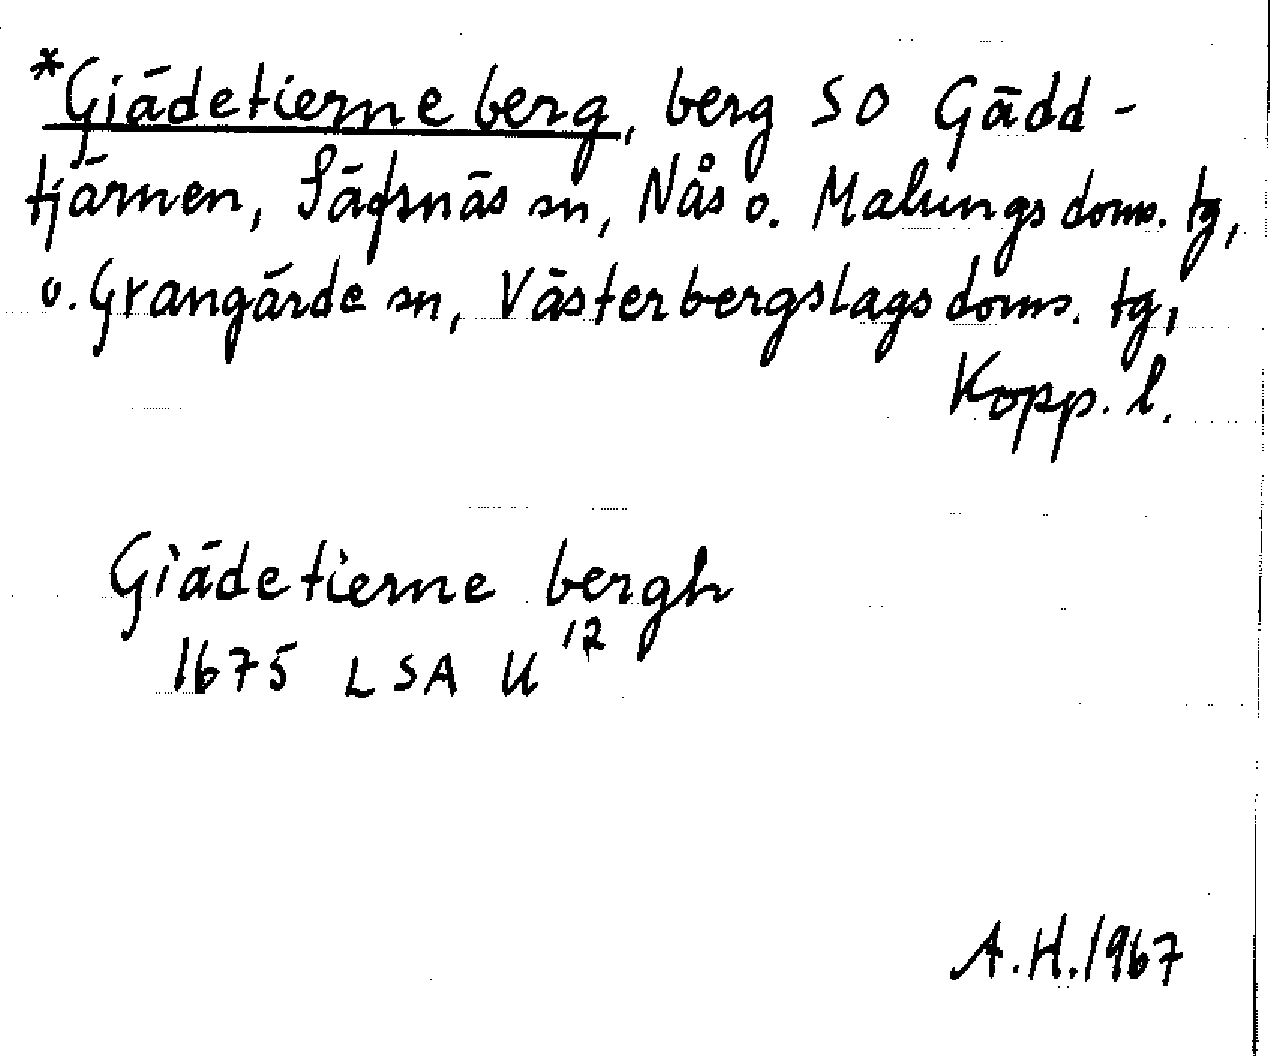 *Giädetierneberg, berg SO Gädd-
tjärnen, Säfsnäs sn, Nås o. Malungs doms. tg,
o. Grangärde sn, Västerbergslags doms. tg,
Kopp. l.
Giädetierne bergh
1675 LSA U 12
A.H. 1967